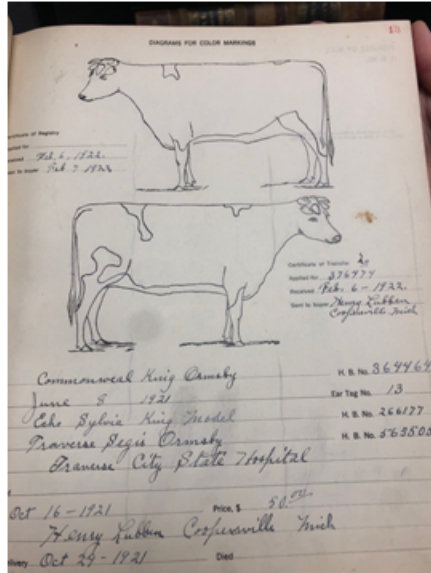 15
DIAGRAMS FOR COLOR MARKINGS
Certificate of Registry
Applied for
Received Feb. 6, 1922.
Sent to buyer Feb. 7. 1922
Certificate of Transfer
Applied for 376477
Received Feb. 6 - 1922.
Sent to buyer Henry Lubben
Coopersville Mich
Commonweal King Ormsby H. B. No. 364464
June 8 1921 Ear Tag No. 13
Echo Sylvia King Model H. B. No. 266177
Traverse Segis Ormsby H. B. No. 563505
Traverse City State Hospital
Oct 16 - 1921 Price, $ 50.00
Henry Lubben Coopersville Mich
Delivery Oct 29 - 1921 Died